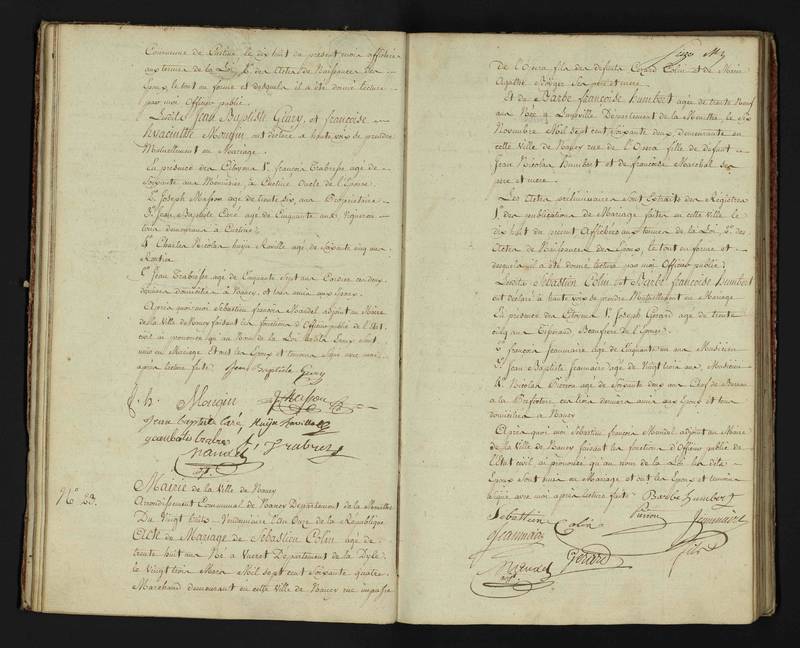 Commune de Custine le dix huit du present mois affichées
aux termes de la Loi, 2.° des Actes de Naissances des
Epoux, le tout en forme et desquels il a été donné lecture
par moi Officier public.
Lesdits Jean Baptiste Geury, et françoise
hyacinthe Mougin ont déclaré à haute voix se prendre
Mutuellement en Mariage.
En presence des Citoyens 1.° françois Trabresse agé de
Soixante ans Menuisier, à Custine Oncle de l'Epouse
2.° Joseph Masson agé de trente six ans Propriétaire
3.° Jean Baptiste Caré agé de Cinquante ans Vigneron
tous demeurans à Custine,
4.° Charles Nicolas huyn Raville agé de soixante cinq ans
Rentier
5.° Jean Trabresse agé de Cinquante sept ans Cordier ces deux
derniers domiciliés à Nancy, et tous amis aux Epoux.
Après quoi moi Sébastien françois Mandel adjoint au Maire
de la Ville de Nancy faisant les fonctions d'Officier public de l'Etat
civil ai prononcé qu'au Nom de la Loi lesdits Epoux sont
unis en Mariage et ont les Epoux et témoins signé avec moi
après lecture faite Jean Baptiste Geury
f. h. Mougin
Jean Baptiste Caré huijn Raville
Mandel
adj.
N.° 23.
Mairie de la Ville de Nancy
Arrondissement Communal de Nancy Département de la Meurthe
Du Vingt Vendemiaire l'an Onze de la République
Acte de Mariage de Sébastien Colin agé de
trente huit ans Né à Département de la Dyle
le Vingt trois Mars Mil sept cent soixante quatre
Marchand demeurant en cette Ville de Nancy rue impasse
de l'Opera fils des defunts Colin et de Marie
Agathe ses pere et mere
Et de Barbe françoise humbert agée de trente Neuf
ans Née à Lunéville Département de la Meurthe, le six
Novembre Mil sept cent soixante deux, demeurante en
cette Ville de Nancy rue de l'Opera fille de defunt
Jean Nicolas humbert et de françoise Marchal ses
pere et mere
Les Actes préliminaires sont Extraits des Registres
1.° des publications de Mariage faites en cette Ville le
dix huit du present Affichées aux termes de la Loi, 2.° des
Actes de Naissances des Epoux, le tout en forme et
desquels il a été donné lecture par moi Officier public.
Lesdits Sébastien Colin, et Barbe françoise humbert
ont déclaré à haute voix se prendre Mutuellement en Mariage
En presence des Citoyens 1.° Joseph Gerard agé de trente
cinq ans Beaufrere de l'Epouse
2.° françois Jeanmaire agé de Cinquante ans Musicien
3.° Jean Baptiste Jeanmaire agé de Vingt trois ans, Musicien
4.° Nicolas Pierron agé de soixante deux ans Chef de Bureau
à la Préfecture, ces trois derniers amis aux Epoux et tous
domiciliés à Nancy
Après quoi moi Sébastien françois Mandel adjoint au Maire
de la Ville de Nancy faisant les fonctions d'Officier public de
l'Etat civil ai prononcé qu'au nom de la Loi les dits
Epoux sont unis en Mariage et ont les Epoux et temoins
signé avec moi après lecture faite Barbe humbert
Sebastien Colin Pierron Jeanmaire
Jeanmaire Gerard fils
Mandel
adj.